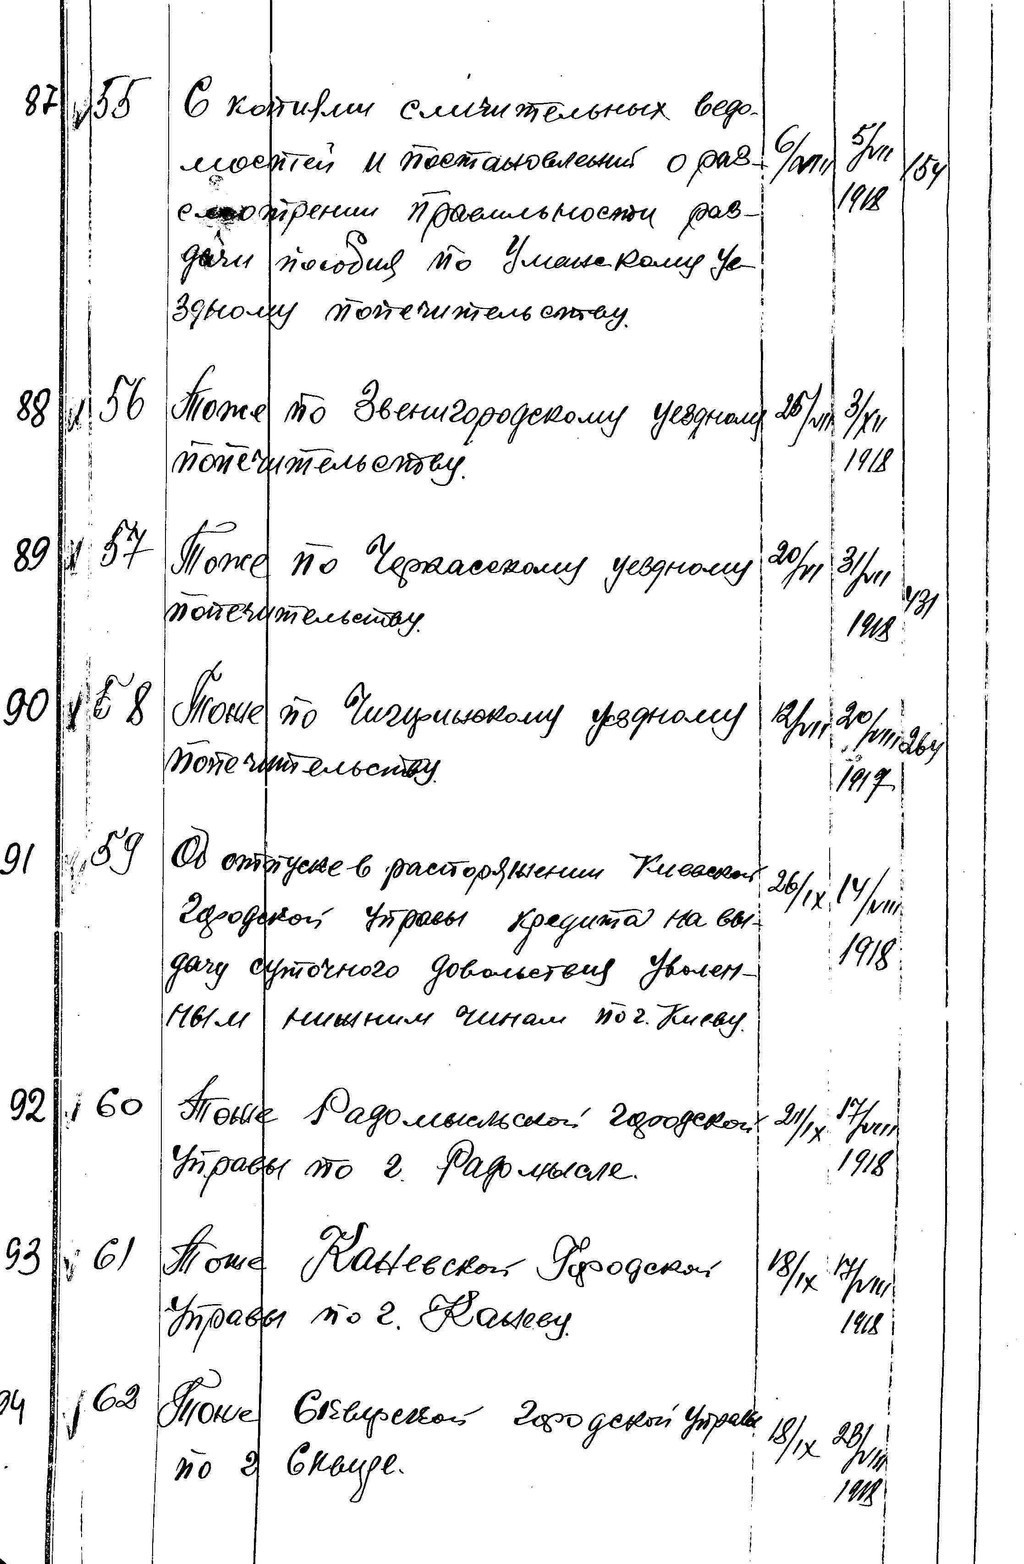 87 55 С копиями сличительных ведо-
мостей и постановлений о раз- 6/VIII 5/VII 154
смотрении правильности раз- 1918
дачи пособия по Уманскому уе-
здному попечительству.
88 56 Тоже по Звенигородскому уездному 25/VII 3/XII
попечительству. 1918
89 57 Тоже по Черкасскому уездному 20/VI 31/VII
попечительству. 1918 431
90 58 Тоже по Чигиринскому уездному 12/VII 20/VIII 264
попечительству. 1917
91 59 Об отпуске в распоряжении Киевской 26/IX 14/VIII
Городской Управы кредита на вы- 1918
дачу суточного довольствия уволен-
ным нижним чинам по г. Киеву.
92 60 Тоже Радомысльской городской 21/IX 17/VIII
Управы по г. Радомысле. 1918
93 61 Тоже Каневской Городской 18/IX 17/VIII
Управы по г. Каневу. 1918
94 62 Тоже Сквирской городской Управы 18/IX 28/VIII
по г Сквире. 1918